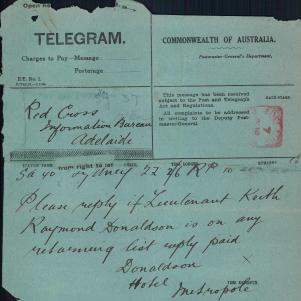 TELEGRAM.
COMMONWEALTH OF AUSTRALIA.
Postmaster-General's Department.
Charges to Pay—Message
Porterage
This message has been received
subject to the Post and Telegraph
Act and Regulations.
All complaints to be addressed
in writing to the Deputy Post-
master-General
Red Cross
Information Bureau
Adelaide
Sydney 22 2/6 RP 10
Please reply if Lieutenant Keith
Raymond Donaldson is on any
returning list reply paid
Donaldson
Hotel Metropole